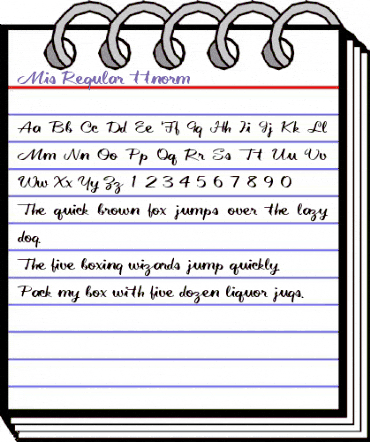 Mis Regular Hnorm
Aa Bb Cc Dd Ee Ff Gg Hh Ii Jj Kk Ll
Mm Nn Oo Pp Qq Rr Ss Tt Uu Vv
Ww Xx Yy Zz 1 2 3 4 5 6 7 8 9 0
The quick brown fox jumps over the lazy
dog.
The five boxing wizards jump quickly.
Pack my box with five dozen liquor jugs.